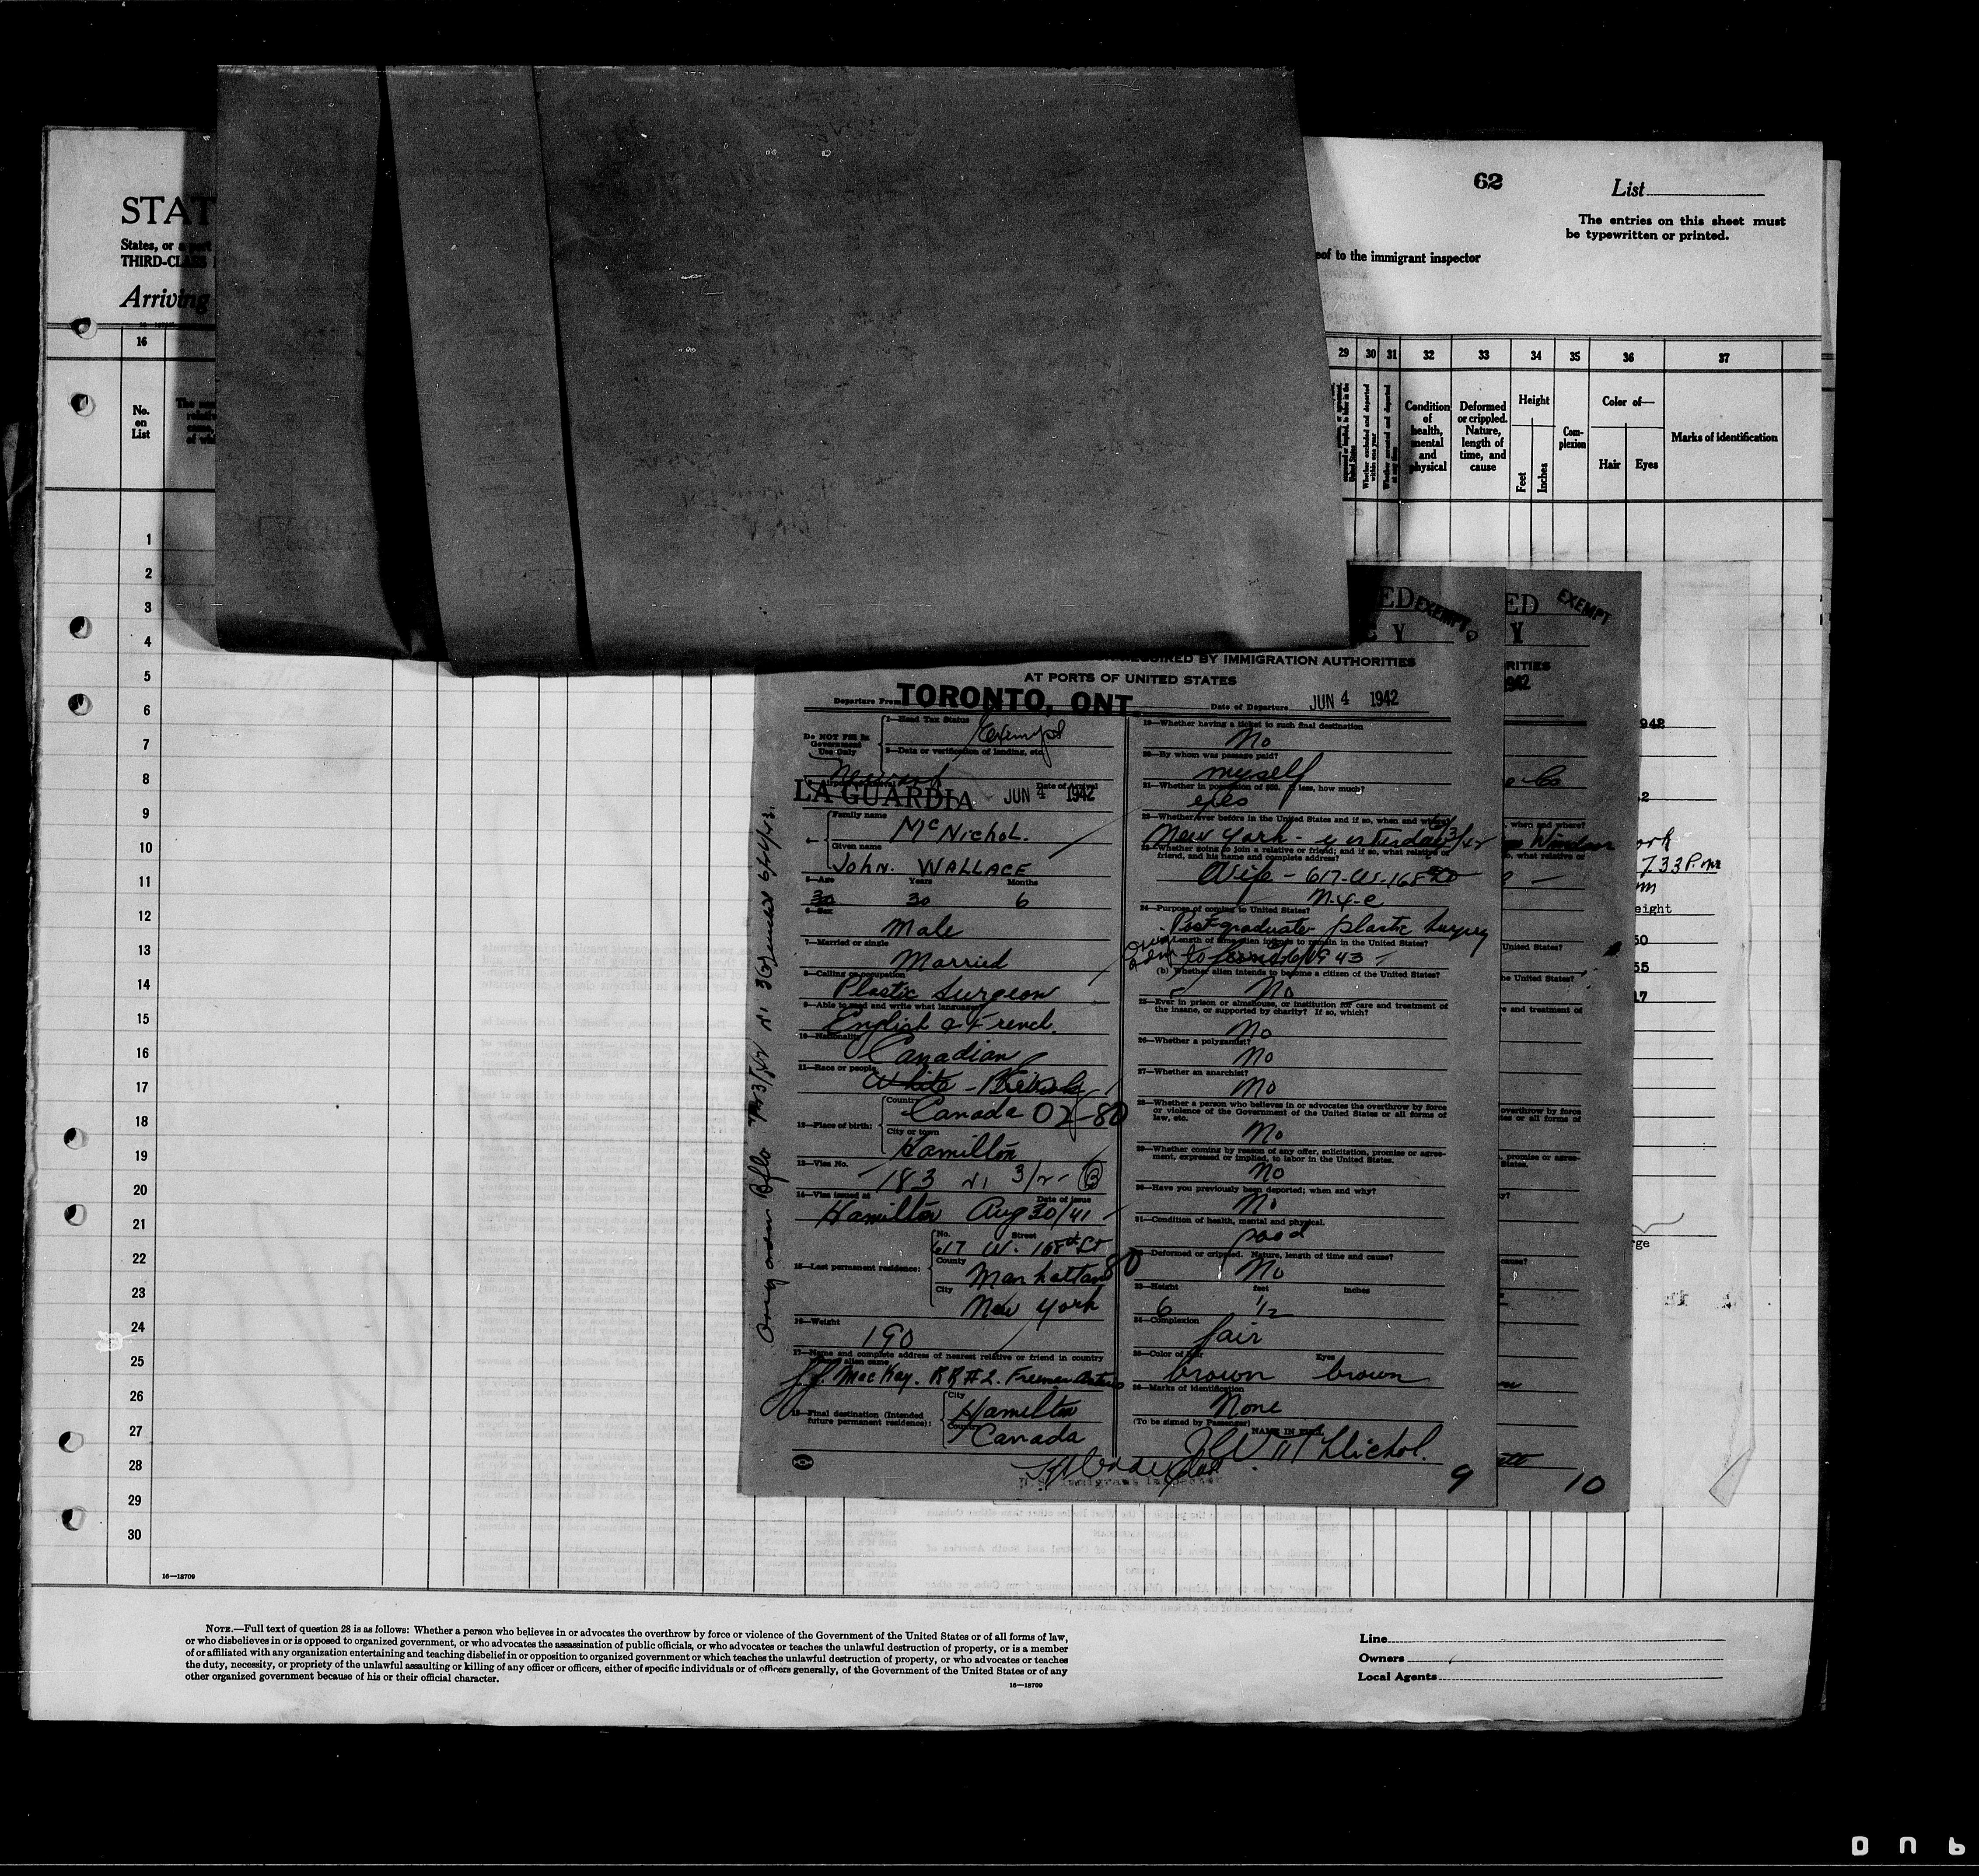 62
List
The entries on this sheet must
be typewritten or printed.
STAT
States, or a part
THIRD-CLASS
eof to the immigrant inspector
Arriving
16
29 30 31 32 33 34 35 36 37
No.
on
List
Condition
of
health,
mental
and
physical
Deformed
or crippled.
Nature,
length of
time, and
cause
Height
Feet
Inches
Com-
plexion
Color of—
Hair Eyes
Marks of identification
Whether excluded and deported within one year
Whether arrested and deported at any time
1
2
3
4
5
6
7
8
9
10
11
12
13
14
15
16
17
18
19
20
21
22
23
24
25
26
27
28
29
30
16—18709
ED EXEMPT
Y
REQUIRED BY IMMIGRATION AUTHORITIES
AT PORTS OF UNITED STATES
Departure From TORONTO, ONT. Date of Departure JUN 4 1942
Do NOT Fill In
Government
Use Only
1—Head Tax Status Exempt
2—Data or verification of landing, etc.
Newark
LA GUARDIA Date of Arrival JUN 4 1942
Family name McNichol.
Given name John. WALLACE
5—Age Years Months
30 30 6
6—Sex
Male
7—Married or single
Married
8—Calling or occupation
Plastic Surgeon
9—Able to read and write what language
English & French.
10—Nationality
Canadian
11—Race or people
White -
12—Place of birth: Country Canada 02-80
City or town
Hamilton
13—Visa No.
183 3/2- (3)
14—Visa issued at Date of issue
Hamilton Aug 30/41
15—Last permanent residence: No. Street
617 W. 168th St
County
Manhattan 80
City
New York
16—Weight
190
17—Name and complete address of nearest relative or friend in country
whence alien came
MacKay. RR#2. Freeman Ontario
18—Final destination (Intended
future permanent residence): City Hamilton
Country Canada
19—Whether having a ticket to such final destination
No
20—By whom was passage paid?
myself
21—Whether in possession of $50. If less, how much?
yes
22—Whether ever before in the United States and if so, when and where?
New York - yesterday 6/3/42
23—Whether going to join a relative or friend; and if so, what relative or
friend, and his name and complete address?
Wife - 617-W-168
N.Y.C
24—Purpose of coming to United States?
Post-graduate- plastic surgery
Length of time alien intends to remain in the United States?
1943
(b) Whether alien intends to become a citizen of the United States?
No
25—Ever in prison or almshouse, or institution for care and treatment of
the insane, or supported by charity? If so, which?
No
26—Whether a polygamist?
No
27—Whether an anarchist?
No
28—Whether a person who believes in or advocates the overthrow by force
or violence of the Government of the United States or all forms of
law, etc.
No
29—Whether coming by reason of any offer, solicitation, promise or agree-
ment, expressed or implied, to labor in the United States.
No
30—Have you previously been deported; when and why?
No
31—Condition of health, mental and physical.
good
32—Deformed or crippled. Nature, length of time and cause?
No
33—Height feet inches
6 1/2
34—Complexion
fair
35—Color of Hair Eyes
brown brown
36—Marks of identification
None
(To be signed by Passenger) NAME IN FULL
U. S. Immigrant Inspector
9
ED EXEMPT
Y
RITIES
1942
, when and where?
Windsor
so, what relative or
United States?
the United States?
e and treatment of
overthrow by force
tes or all forms of
, promise or agree-
States.
cause?
10
942
ork
7.33 P.m
eight
50
55
17
rge
NOTE.—Full text of question 28 is as follows: Whether a person who believes in or advocates the overthrow by force or violence of the Government of the United States or of all forms of law,
or who disbelieves in or is opposed to organized government, or who advocates the assassination of public officials, or who advocates or teaches the unlawful destruction of property, or is a member
of or affiliated with any organization entertaining and teaching disbelief in or opposition to organized government or which teaches the unlawful destruction of property, or who advocates or teaches
the duty, necessity, or propriety of the unlawful assaulting or killing of any officer or officers, either of specific individuals or of officers generally, of the Government of the United States or of any
other organized government because of his or their official character.
16—18709
Line
Owners
Local Agents